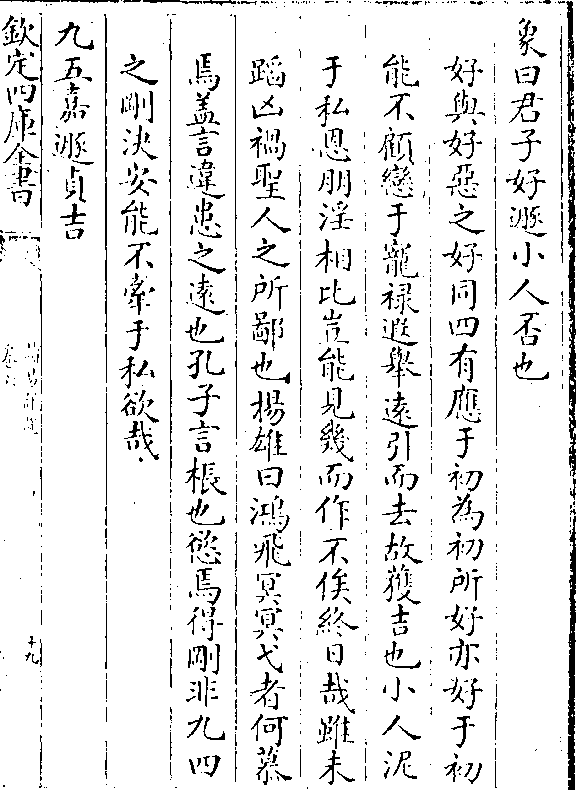 象曰君子好遯小人否也
好與好惡之好同四有應于初為初所好亦好于初
能不顧戀于寵祿遐舉遠引而去故獲吉也小人泥
于私恩朋淫相比豈能見幾而作不俟終日哉雖未
蹈凶禍聖人之所鄙也楊雄曰鴻飛冥冥弋者何慕
焉蓋言違患之遠也孔子言棖也慾焉得剛非九四
之剛決安能不牽于私欲哉
九五嘉遯貞吉
欽定四庫全書
十九